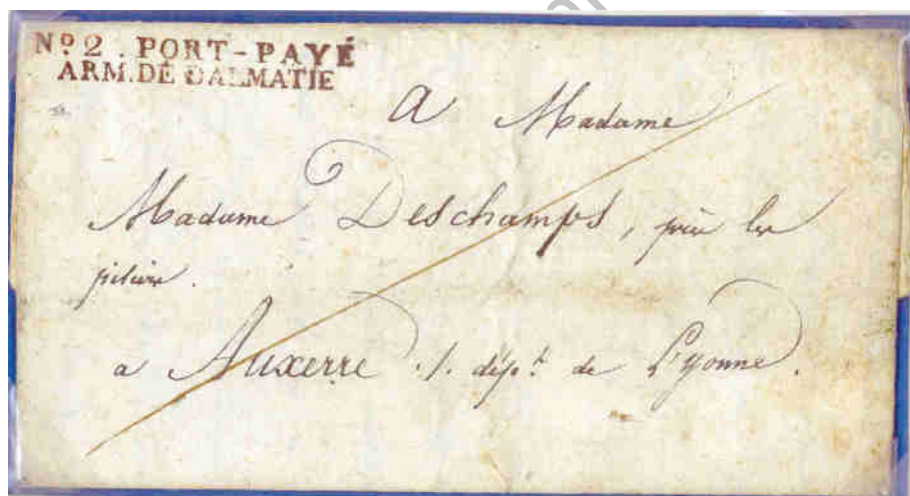 Nº 2 . PORT-PAYÉ
ARM. DE DALMATIE
A Madame
Madame Deschamps, près les
piliers.
a Auxerre ./. dép.t de L'yonne.